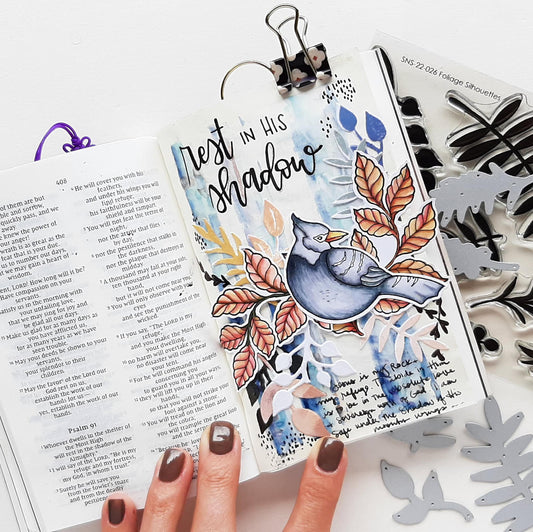 408
They are but
and sorrow,
quickly pass, and
away
know the power of
ger!
that is as great as the
r that is due you.
to number our days,
may gain a heart of
wisdom.
LORD! How long will it be?
have compassion on your
servants.
us in the morning with
unfailing love,
that we may sing for joy and
be glad all our days.
Make us glad for as many days as
for as many years as we have
seen trouble.
May your deeds be shown to your
servants,
your splendor to
their children.
May the favor of the Lord our
God rest on us;
establish the work of our
hands for us—
yes, establish the work of our
hands.
Psalm 91
Whoever dwells in the shelter of
the Most High
will rest in the shadow of the
Almighty.
I will say of the LORD, "He is my
refuge and my fortress,
my God, in whom I trust."
Surely he will save you
from the fowler's snare
and from the deadly
He will cover you with his
feathers,
and under his wings you will
find refuge;
his faithfulness will be your
shield and rampart.
You will not fear the terror of
night,
nor the arrow that flies
by day,
nor the pestilence that stalks in
the darkness,
nor the plague that destroys at
midday.
A thousand may fall at your side,
ten thousand at your
right hand,
but it will not come near you.
You will only observe with your
eyes
and see the punishment of the
If you say, "The LORD is my
refuge,"
and you make the Most High
your dwelling,
no harm will overtake you,
no disaster will come near
your tent.
For he will command his angels
concerning you
to guard you in all your ways;
they will lift you up in their
hands,
so that you will not strike your
foot against a stone.
You will tread on the lion and
the cobra;
you will trample the great lion
rest IN HIS
shadow
SNS-22-026 Foliage Silhouettes